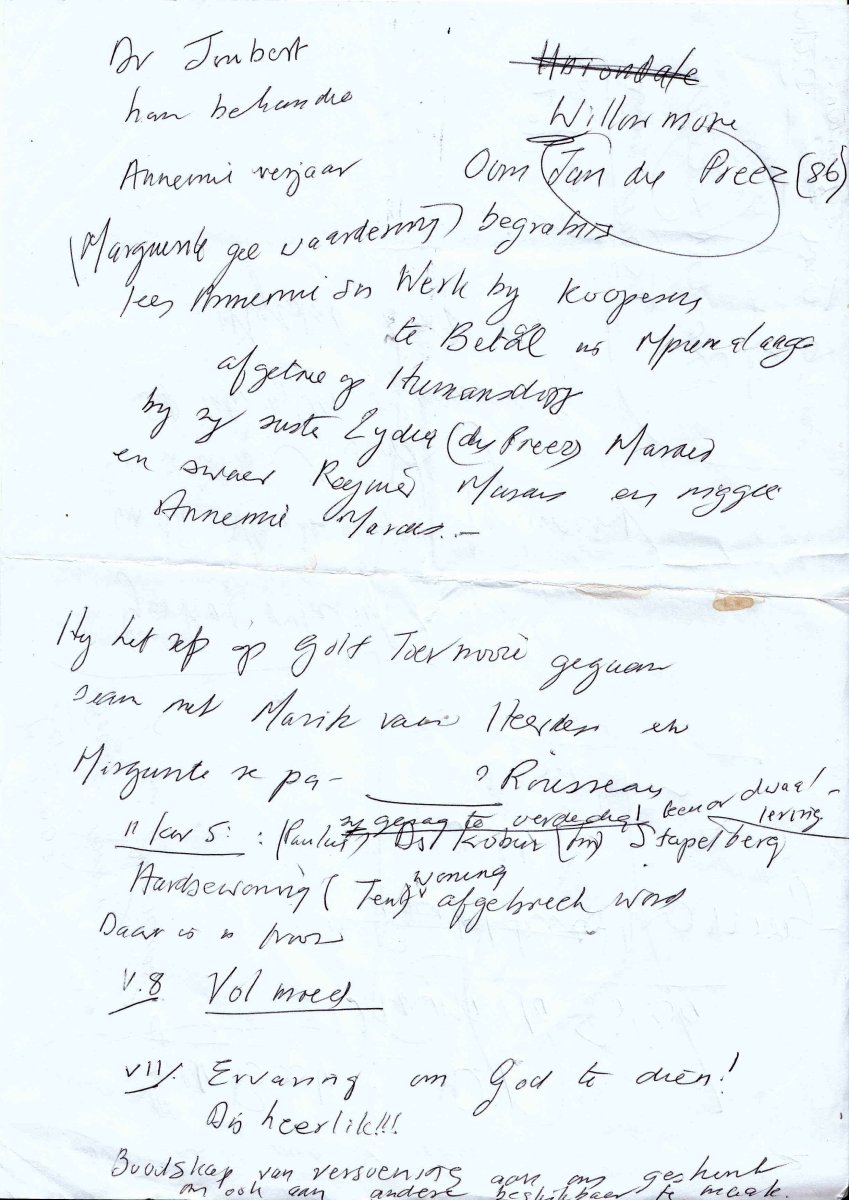 Dr Joubert
~~Uniondale~~
hom behandel
Willowmore
Annemie verjaar
Oom Jan du Preez (86)
(Marguerite gee waardering) begrafnis
lees Annemie Werk by Koöperasie
te Betal Mpumalanga
afgetree op Humansdorp
by sy suster Lydia (du Preez) Marais
en swaer Reyniér Marais en niggie
Annemie Marais. –
Hy het self op Golf Toernooie gegaan
saam met Marik van Heerden en
Marguerite se pa – ? Rousseau
sy gesag te verdedig teenoor dwaal-
lering
II Kor 5: : (Paulus) Ds Kobus (Jnr) Stapelberg
Aardsewoning (Tent) woning afgebreek word
Daar is 'n
V.8 Vol moed
V11. Ervaring om God te dien!
Dis heerlik!!!
Boodskap van versoening aan ons geskenk
om ook aan andere beskikbaar te maak